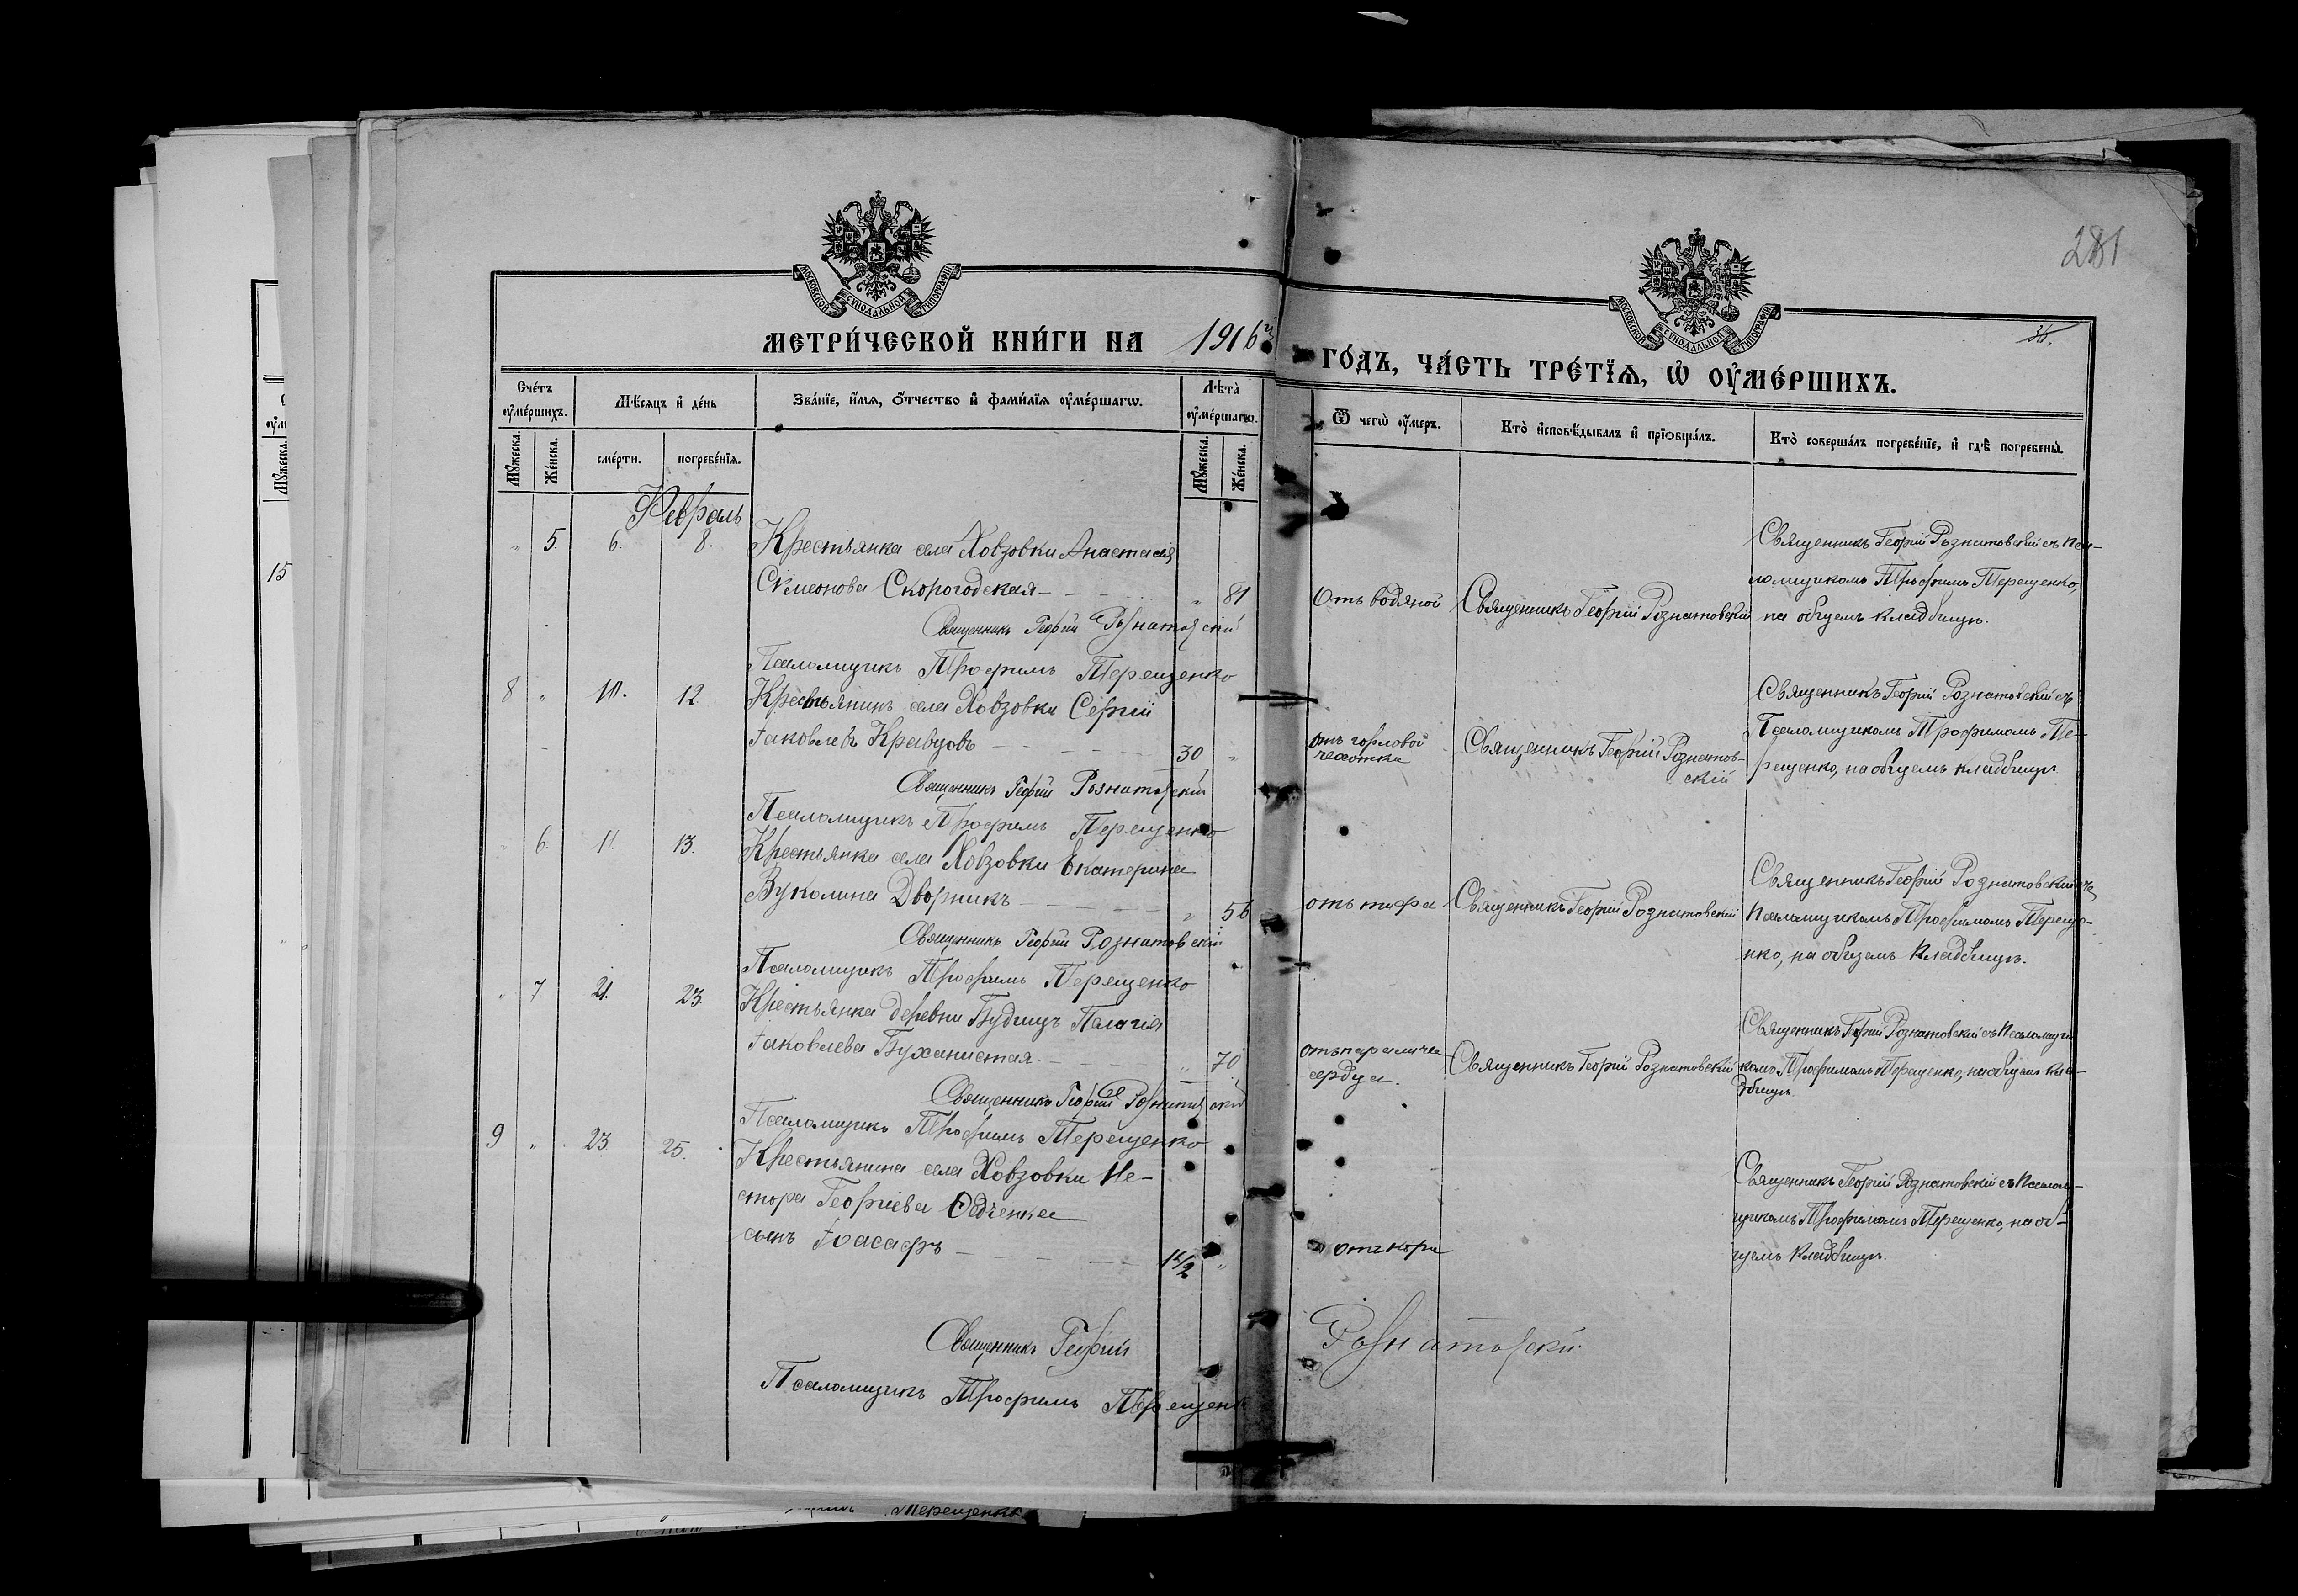 281
МОСКОВСКОЙ СѴНОДАЛЬНОЙ ТИПОГРАФІИ
МОСКОВСКОЙ СѴНОДАЛЬНОЙ ТИПОГРАФІИ
МЕТРИ́ЧЕСКОЙ КНИ́ГИ НА 1916й
ГО́ДЪ, ЧА́СТЬ ТРЕ́ТЇѦ, Ѡ ОУ҆МЕ́РШИХЪ.
Сче́тъ оу҆ме́ршихъ.
Мѣ́сѧцъ и҆ де́нь
Зва́нїе, и҆́мѧ, ѻ҆́тчество и҆ фами́лїѧ оу҆ме́ршагѡ.
Лѣ́та оу҆ме́ршагѡ.
Ѿ чегѡ̀ оу҆́меръ.
Кто̀ и҆сповѣ́дывалъ и҆ прїѻбща́лъ.
Кто̀ соверша́лъ погребе́нїе, и҆ гдѣ̀ погребены̀.
Мꙋ́жеска.
Же́нска.
сме́рти.
погребе́нїѧ.
Мꙋ́жеска.
Же́нска.
Февраль
" 5. 6. 8. Крестьянка села Ховзовки Анастасія
Симеонова Скорогодская — " 81
Отъ водяной
Священникъ Георгій Рознатовскій
Священникъ Георгій Рознатовскій съ Пса-
ломщикомъ Трофимъ Терещенко,
на общемъ кладбищѣ.
Священникъ Георгій Рознатовскій
Псаломщикъ Трофимъ Терещенко
8 " 10. 12. Крестьянинъ села Ховзовки Сергій
Іаковлевъ Кравцовъ — 30 "
отъ горловой
чахотки
Священникъ Георгій Рознатов-
скій
Священникъ Георгій Рознатовскій съ
Псаломщикомъ Трофимомъ Те-
рещенко, на общемъ кладбищѣ
Священникъ Георгій Рознатовскій
Псаломщикъ Трофимъ Терещенко
" 6. 11. 13. Крестьянка села Ховзовки Екатерина
Вуколина Дворникъ — " 56
отъ тифа
Священникъ Георгій Рознатовскій
Священникъ Георгій Рознатовскій съ
Псаломщикомъ Трофимомъ Тереще-
нко, на общемъ кладбищѣ.
Священникъ Георгій Рознатовскій
Псаломщикъ Трофимъ Терещенко
" 7 21. 23. Крестьянка деревни Будищъ Палагія
Іаковлева Буханистая — " 70
отъ паралича
сердца.
Священникъ Георгій Рознатовскій
Священникъ Георгій Рознатовскій съ Псаломщи
комъ Трофимомъ Терещенко, на общемъ кла-
дбищѣ.
Священникъ Георгій Рознатовскій
Псаломщикъ Трофимъ Терещенко
9 " 23 25. Крестьянина села Ховзовки Не-
стора Георгіева Федченка
сынъ Іоасафъ — 1 1/2 "
отъ кори
Священникъ Георгій Рознатовскій съ Псалом-
щикомъ Трофимомъ Терещенко, на об-
щемъ кладбищѣ.
Священникъ Георгій Рознатовскій
Псаломщикъ Трофимъ Терещенко
15
Терещенко